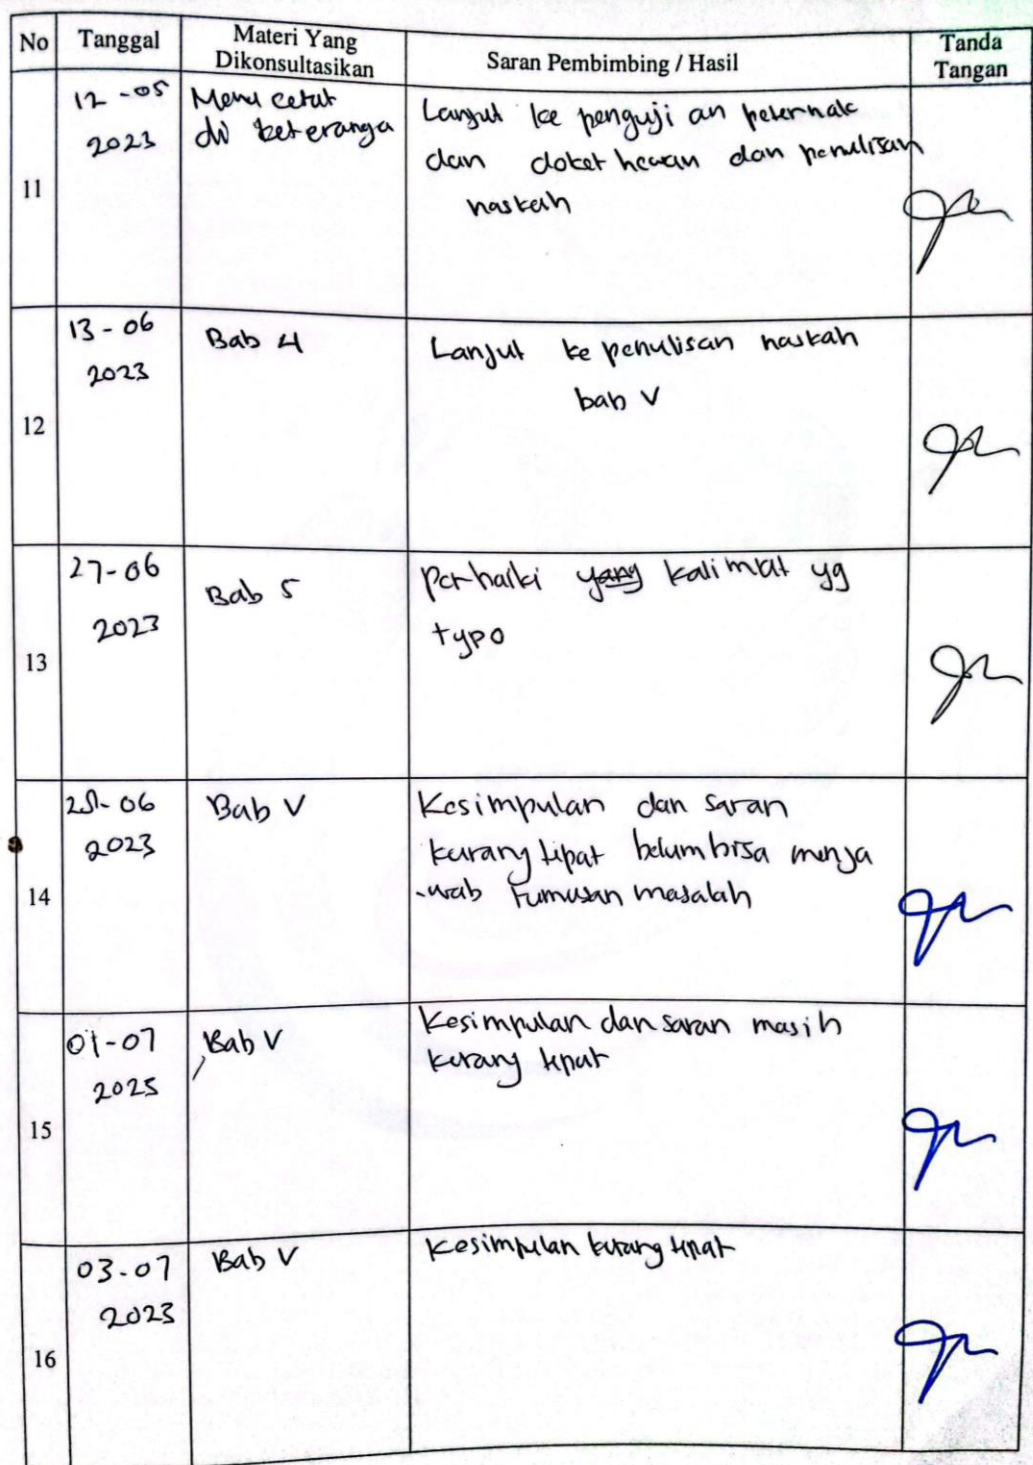 No Tanggal Materi Yang Dikonsultasikan Saran Pembimbing / Hasil Tanda Tangan
11
12-05
2023
Menu cetak
di keteranga
Lanjut ke penguji an peternak
dan dokter hewan dan penulisan
naskah
12
13-06
2023
Bab 4
Lanjut ke penulisan naskah
bab V
13
27-06
2023
Bab 5
Perbaiki yang kalimat yg
typo
14
06
2023
Bab V
Kesimpulan dan saran
kurang tepat belum bisa menja
-wab rumusan masalah
15
01-07
2023
Bab V
Kesimpulan dan saran masih
kurang tepat
16
03-07
2023
Bab V
Kesimpulan kurang tepat